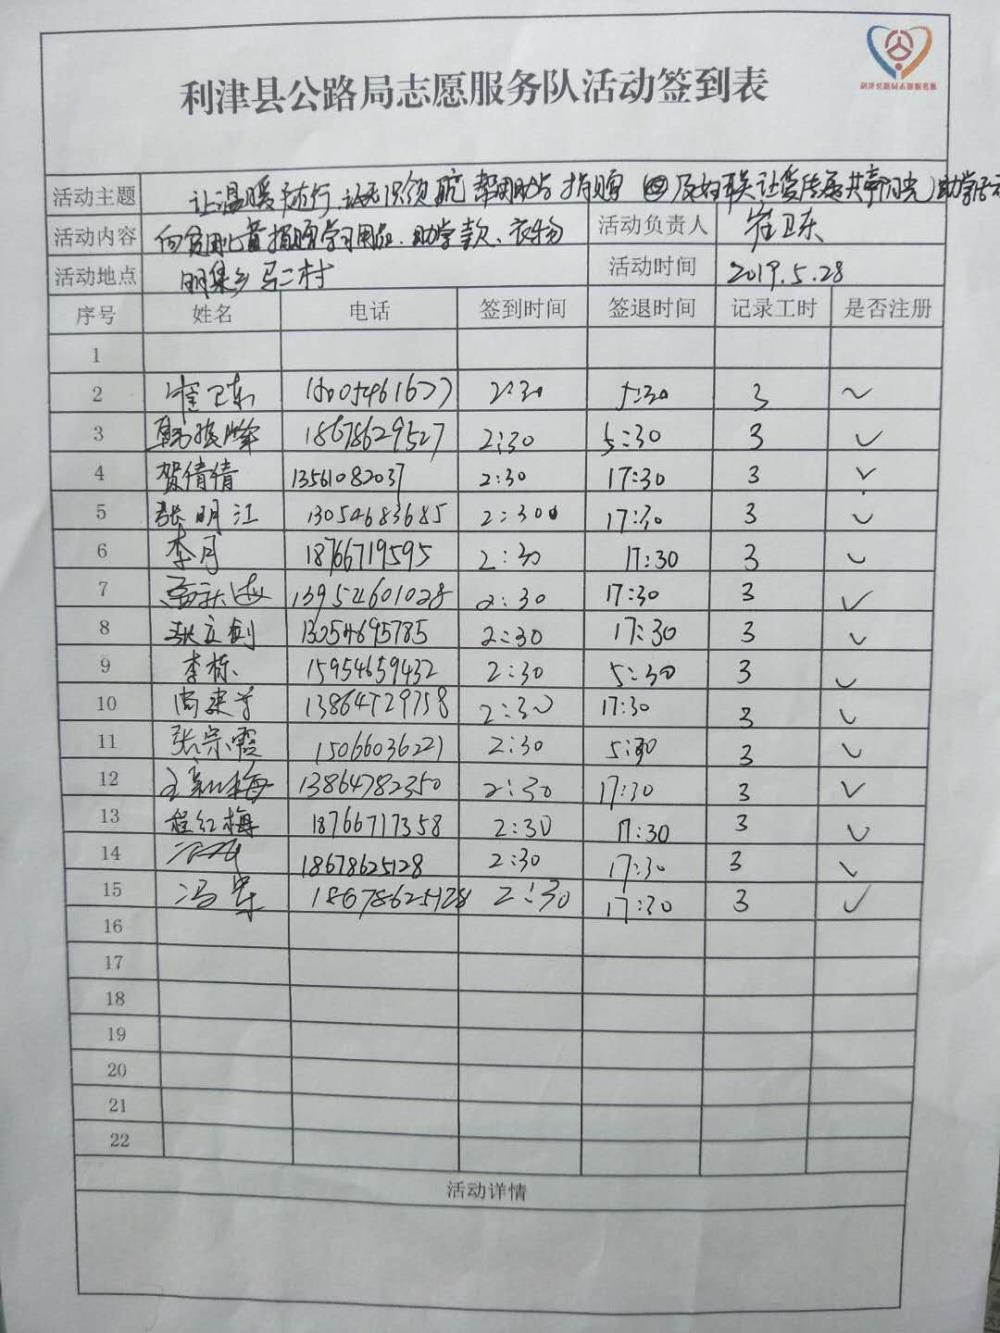 利津县公路局志愿服务队活动签到表
利津县公路局志愿服务队
活动主题 让温暖 行 领航 帮困助 捐赠 让 传 共 助学活动
活动内容 向贫困儿童捐赠学习用品、助学款、衣物 活动负责人 崔卫东
活动地点 明集乡 二村 活动时间 2019.5.28
序号 姓名 电话 签到时间 签退时间 记录工时 是否注册
1
2 崔卫东 18005461677 2:30 5:30 3 ✓
3 韩 峰 18678629527 2:30 5:30 3 ✓
4 贺倩倩 13561082037 2:30 17:30 3 ✓
5 张明江 13054683685 2:30 17:30 3 ✓
6 李月 18766719595 2:30 17:30 3 ✓
7 海 13954601028 2:30 17:30 3 ✓
8 张立剑 13054695785 2:30 17:30 3 ✓
9 李栋 15954659432 2:30 5:30 3 ✓
10 尚建 13864729758 2:30 17:30 3 ✓
11 张宗霞 15066036221 2:30 5:30 3 ✓
12 王 梅 13864782350 2:30 17:30 3 ✓
13 程红梅 18766717358 2:30 17:30 3 ✓
14 18678625128 2:30 17:30 3 ✓
15 冯 18678625128 2:30 17:30 3 ✓
16
17
18
19
20
21
22
活动详情